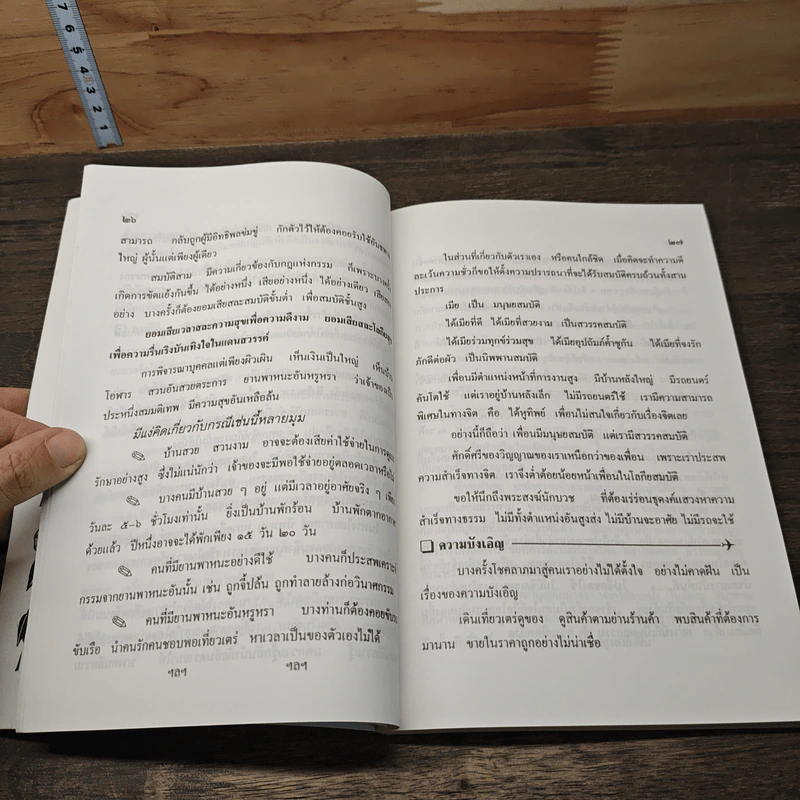 7
6
5
4
3
2
1
๒๖
สามารถ กลับถูกผู้มีอิทธิพลข่มขู่ กักตัวไว้ให้ต้องคอยรับใช้อันธพาล
ใหญ่ ผู้นั้นแต่เพียงผู้เดียว
สมบัติสาม มีความเกี่ยวข้องกับกฎแห่งกรรม ก็เพราะบางครั้ง
เกิดการขัดแย้งกันขึ้น ได้อย่างหนึ่ง เสียอย่างหนึ่ง ได้อย่างเดียว เสีย
อย่าง บางครั้งก็ต้องยอมเสียสละสมบัติขั้นต่ำ เพื่อสมบัติขั้นสูง
ยอมเสียเวลาสละความสุขเพื่อความดีงาม ยอมเสียสละโลกีย
เพื่อความรื่นเริงบันเทิงใจในแดนสวรรค์
การพิจารณาบุคคลแต่เพียงผิวเผิน เห็นเงินเป็นใหญ่ เห็น
โอฬาร สวนอันสวยตระการ ยานพาหนะอันหรูหรา ว่าเจ้าของเป็น
ประหนึ่งสมมติเทพ มีความสุขอันเหลือล้น
มีแง่คิดเกี่ยวกับกรณีเช่นนี้หลายมุม
บ้านสวย สวนงาม อาจจะต้องเสียค่าใช้จ่ายในการดูแล
รักษาอย่างสูง ซึ่งไม่แน่นักว่า เจ้าของจะมีพอใช้จ่ายอยู่ตลอดเวลาหรือไม่
บางคนมีบ้านสวย ๆ อยู่ แต่มีเวลาอยู่อาศัยจริง ๆ เพียง
วันละ ๕-๖ ชั่วโมงเท่านั้น ยิ่งเป็นบ้านพักร้อน บ้านพักตากอากาศ
ด้วยแล้ว ปีหนึ่งอาจจะได้พักเพียง ๑๕ วัน ๒๐ วัน
คนที่มียานพาหนะอย่างดีใช้ บางคนก็ประสพเคราะห์
กรรมจากยานพาหนะอันนั้น เช่น ถูกจี้ปล้น ถูกทำลายล้างก่อวินาศกรรม
คนที่มียานพาหนะอันหรูหรา บางท่านก็ต้องคอยขับรถ
ขับเรือ นำคนรักคนชอบพอเที่ยวเตร่ หาเวลาเป็นของตัวเองไม่ได้
ฯลฯ ฯลฯ
๒๗
ในส่วนที่เกี่ยวกับตัวเราเอง หรือคนใกล้ชิด เมื่อคิดจะทำความดี
ละเว้นความชั่วก็ขอให้ตั้งความปรารถนาที่จะได้รับสมบัติครบถ้วนทั้งสาม
ประการ
เมีย เป็น มนุษยสมบัติ
ได้เมียที่ดี ได้เมียที่สวยงาม เป็นสวรรคสมบัติ
ได้เมียร่วมทุกข์ร่วมสุข ได้เมียอุปถัมภ์ค้ำชูกัน ได้เมียที่จงรัก
ภักดีต่อผัว เป็นนิพพานสมบัติ
เพื่อนมีตำแหน่งหน้าที่การงานสูง มีบ้านหลังใหญ่ มีรถยนต์
คันโตใช้ แต่เราอยู่บ้านหลังเล็ก ไม่มีรถยนต์ใช้ เรามีความสามารถ
พิเศษในทางจิต คือ ได้หูทิพย์ เพื่อนไม่สนใจเกี่ยวกับเรื่องจิตเลย
อย่างนี้ก็ถือว่า เพื่อนมีมนุษยสมบัติ แต่เรามีสวรรคสมบัติ
ศักดิ์ศรีของวิญญาณของเราเหนือกว่าของเพื่อน เพราะเราประสพ
ความสำเร็จทางจิต เราจึงต่ำต้อยน้อยหน้าเพื่อนในโลกียสมบัติ
ขอให้นึกถึงพระสงฆ์นักบวช ที่ต้องเร่ร่อนธุดงค์แสวงหาความ
สำเร็จทางธรรม ไม่มีทั้งตำแหน่งอันสูงส่ง ไม่มีบ้านจะอาศัย ไม่มีรถจะใช้
ความบังเอิญ
บางครั้งโชคลาภมาสู่คนเราอย่างไม่ได้ตั้งใจ อย่างไม่คาดฝัน เป็น
เรื่องของความบังเอิญ
เดินเที่ยวเตร่ดูของ ดูสินค้าตามย่านร้านค้า พบสินค้าที่ต้องการ
มานาน ขายในราคาถูกอย่างไม่น่าเชื่อ